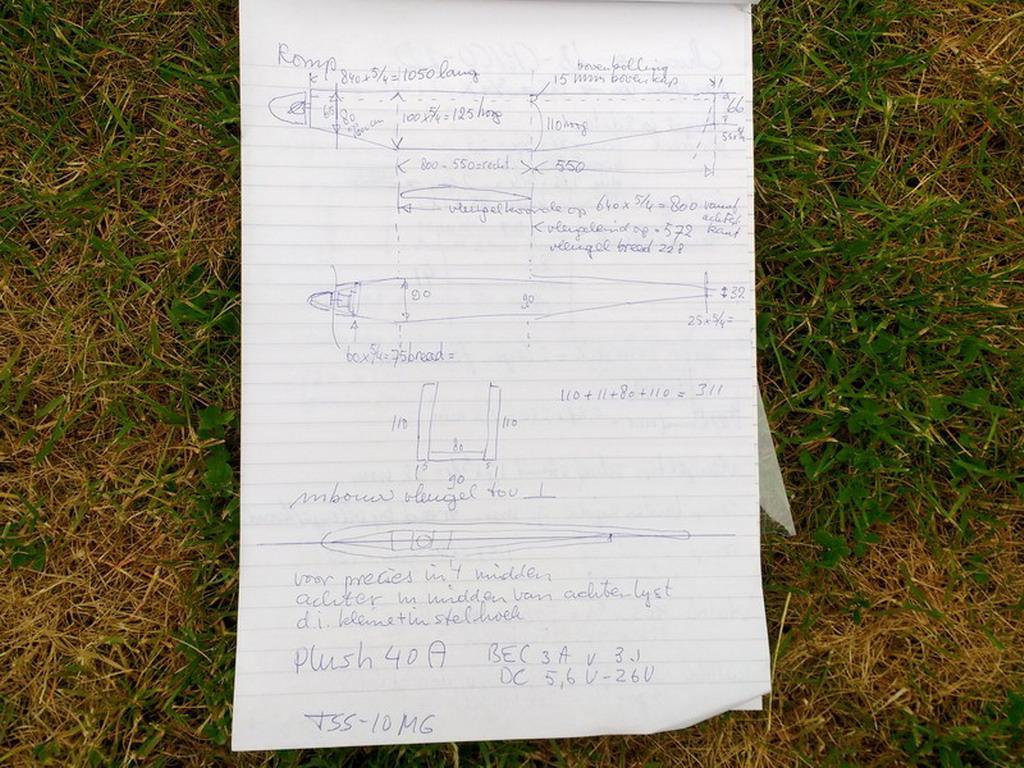 Romp
bovenbolling
840 x 5/4 = 1050 lang
15 mm bovenkap
65
80
100 x 5/4 = 125 hoog
110 hoog
66
800 - 550 = recht
550
vleugel op 640 x 5/4 = 800 vanaf
achter
vleugeleind op = 572 kant
vleugel breed 228
90
90
32
25 x 5/4 =
60 x 5/4 = 75 breed =
110 + 11 + 80 + 110 = 311
110
110
80
5 5
90
inbouw vleugel tov ⊥
voor precies in 't midden
achter in midden van achterlyst
d.i. klein stelhoek
Plush 40 A BEC 3A v 3.1
DC 5,6 V - 26V
TSS-10 MG